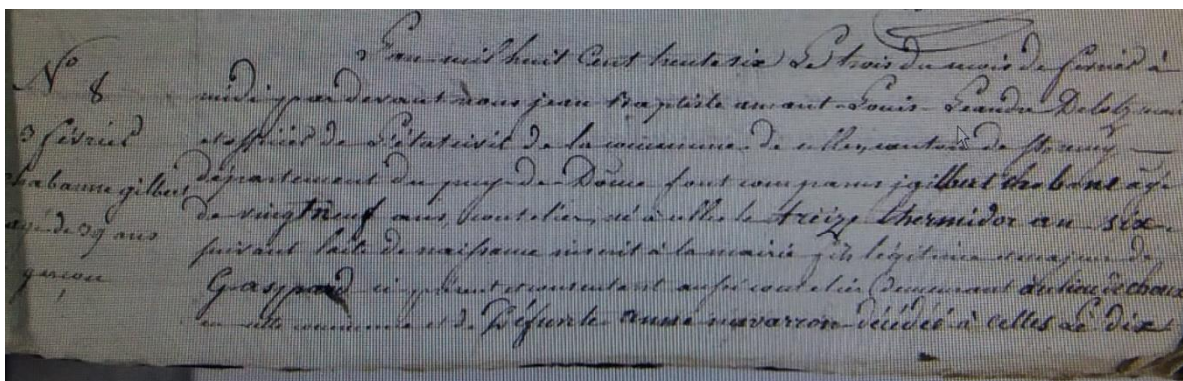 L'an mil huit Cent trente six Le trois du mois de fevrier à
N° 8
midi par devant nous jean Baptiste amant Louis Leandre
3 fevrier
et officier de L'état civil de la commune de celles, canton de
chabanne gilbert
département du puy-de-Dôme sont comparus gilbert chabane agé
de vingt neuf ans coutelier, né à celles le treize thermidor an six
agé de 39 ans
suivant l'acte de naissance inscrit à la mairie fils légitime et majeur de
garçon
Gaspard ici présent et consentant aussi coutelier Demeurant au lieu de choux
en cette commune et de Défunte anne navarron décédée à celles Le dix